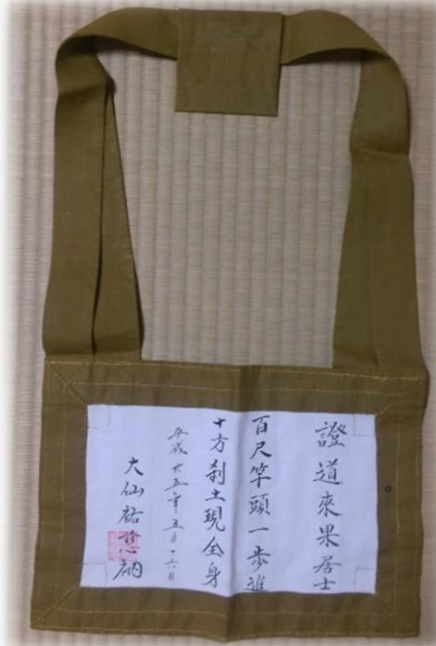 證道來果居士
百尺竿頭一歩進
十方刹土現全身
平成廿五年五月十六日
大仙祐慈衲